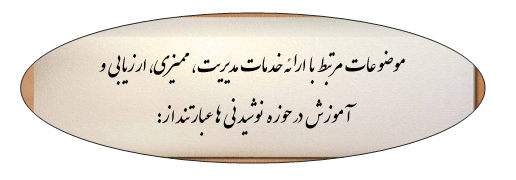 موضوعات مرتبط با ارائه خدمات مدیریت، ممیزی، ارزیابی و
آموزش در حوزه نوشیدنی ها عبارتند از: